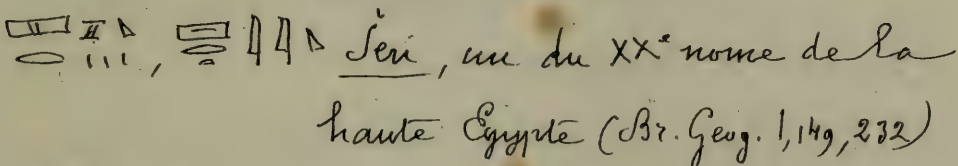 Šeri, un du XXᵉ nome de la
haute Egypte (Br. Geog. 1, 149, 232)